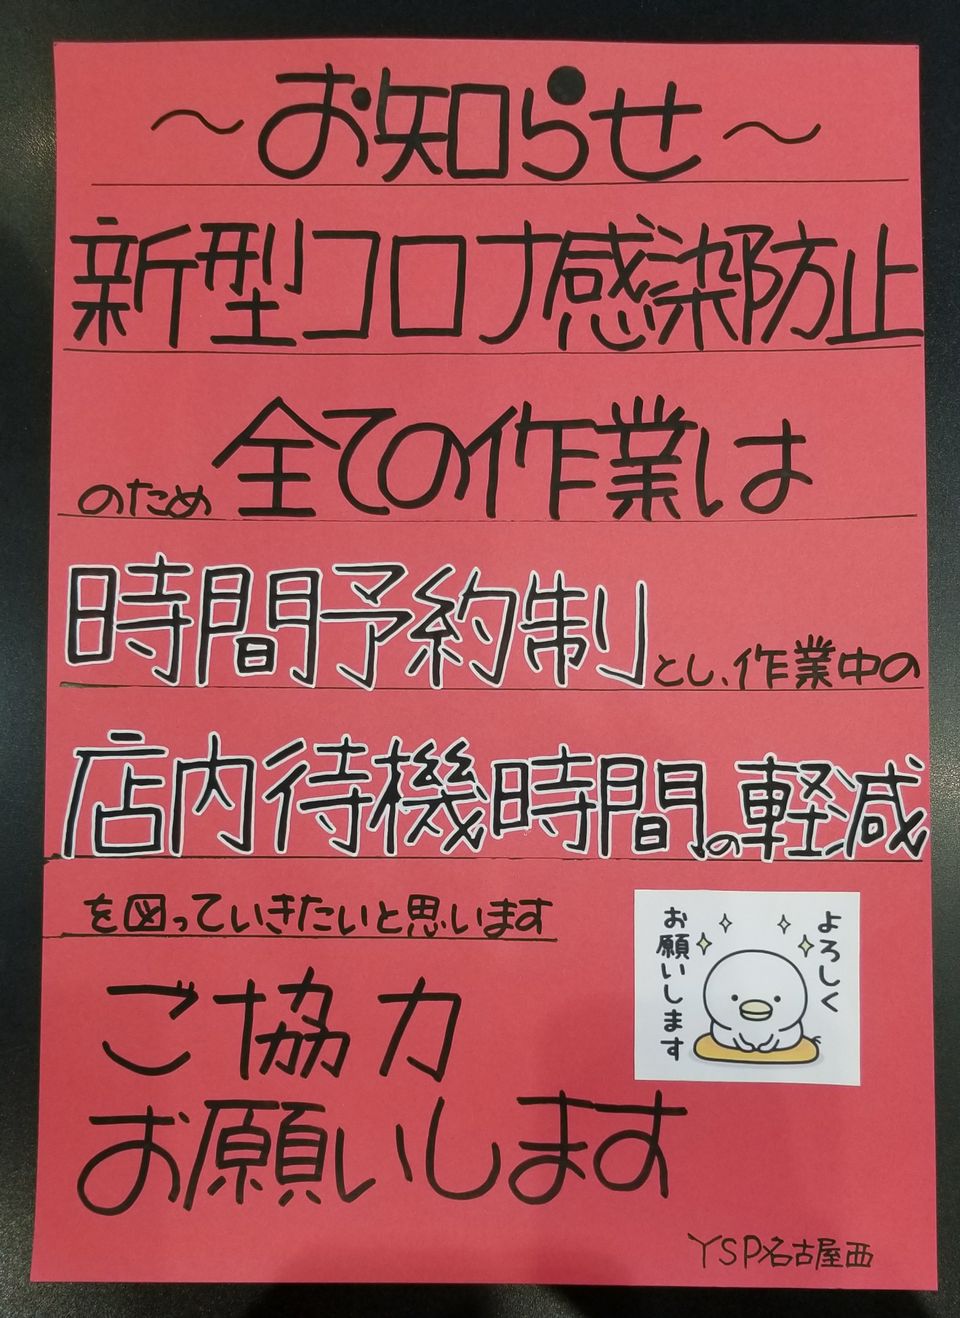 ～お知らせ～
新型コロナ感染防止
のため全ての作業は
時間予約制とし、作業中の
店内待機時間の軽減
を図っていきたいと思います
よろしく
お願いします
ご協力
お願いします
YSP名古屋西